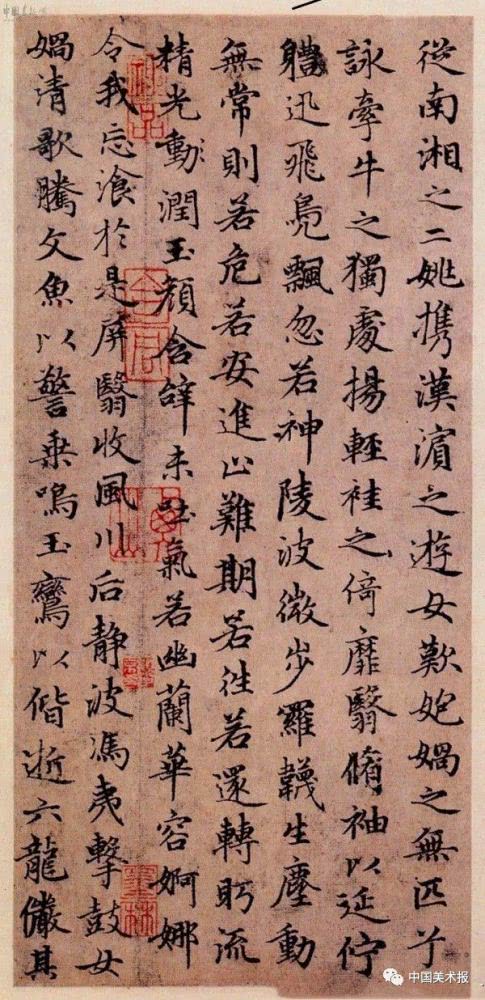 從南湘之二姚携漢濵之遊女歎妑媧之無匹兮
詠牽牛之獨處揚輕袿之倚靡翳脩袖以延佇
軆迅飛鳧飄忽若神陵波微步羅韈生塵動
無常則若危若安進止難期若往若還轉眄流
精光動潤玉顏含辝未吐氣若幽蘭華容婀娜
令我忘飡於是屏翳收風川后静波馮夷擊鼓女
媧清歌騰文魚以警乗鳴玉鸞以偕逝六龍儼其
神品
墨林
中国美术报